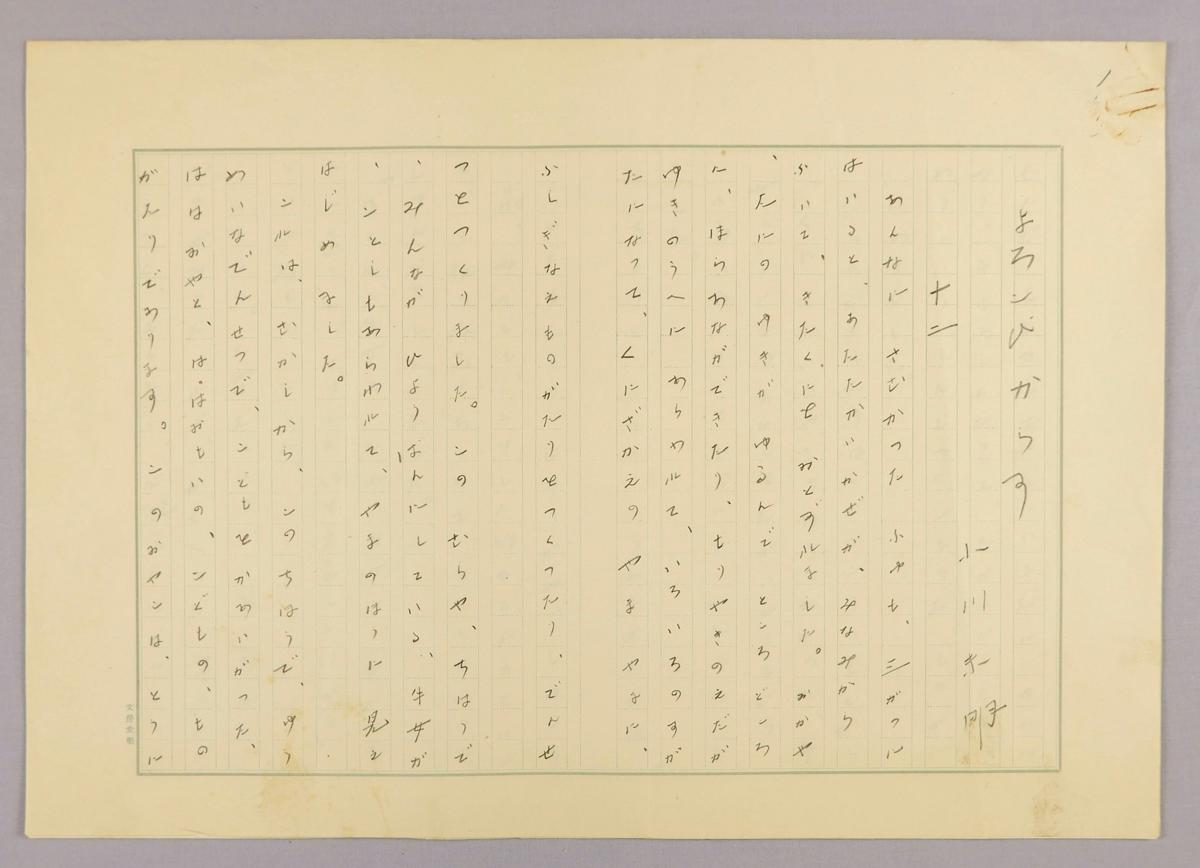 よろこびからす
小川未明
十二
あんなに さむかつた ふゆも、三がつに
はいると、あたたかいかぜが、みなみから
ふいて、きたくにを おとずれました。がかや
、たにの ゆきが ゆるんで ところどころ
に、ほらあながでできたり、もりやきのえだが
ゆきのうへに あらわれて、いろいろのすが
たになつて、くにざかえの やまやまに、
ふしぎなえものがたりをつくつたり、でんせ
つをつくりました。この むらや、ちほうで
、みんなが ひようばんにしている、牛女が
、ことしもあらわれて、やまのほうに 見え
はじめました。
これは、むかしから、この ちほうで、ゆう
めいなでんせつで、こどもをかわいがつた、
ははおやと、ははおもいの、こどもの、もの
がたりであります。このおやこは、とうに